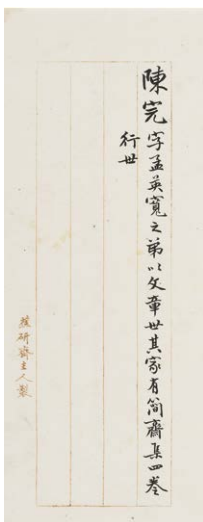 陳完字孟英寬之弟以文章世其家有简齋集四卷
行世
蘐研齋主人製